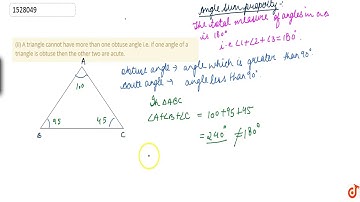 1528049
(ii) A triangle cannot have more than one obtuse angle i.e. if one angle of a
triangle is obtuse then the other two are acute.
Angle sum property:-
The total measure of angles in a Δ
is 180°
i.e ∠1+∠2+∠3=180°.
obtuse angle → angle which is greater than 90°.
acute angle → angle less than 90°
In ΔABC
∠A+∠B+∠C = 100+95+45
= 240° ≠ 180°
A
100
95
45
B
C